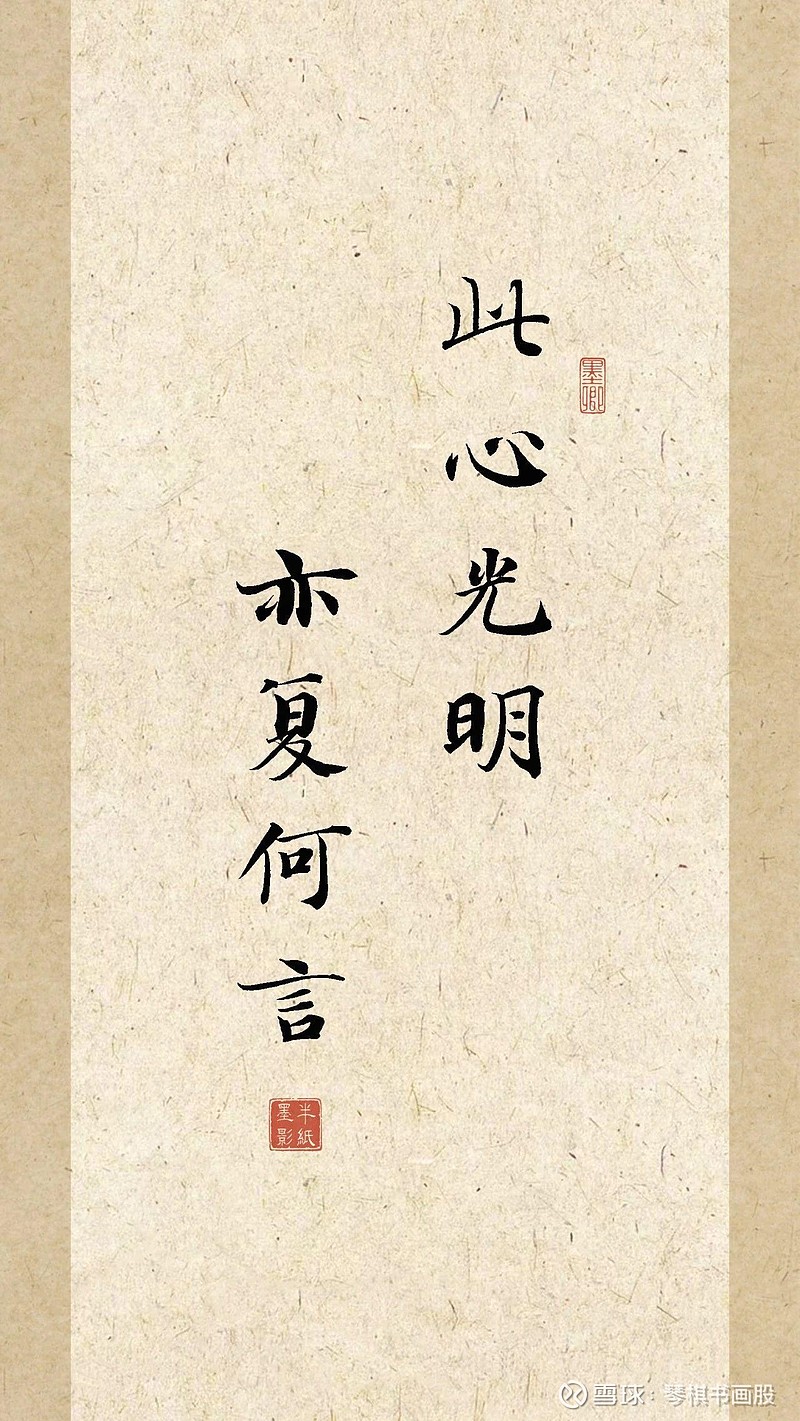 此心光明
亦复何言
墨卿
半紙
墨影
雪球：琴棋书画股